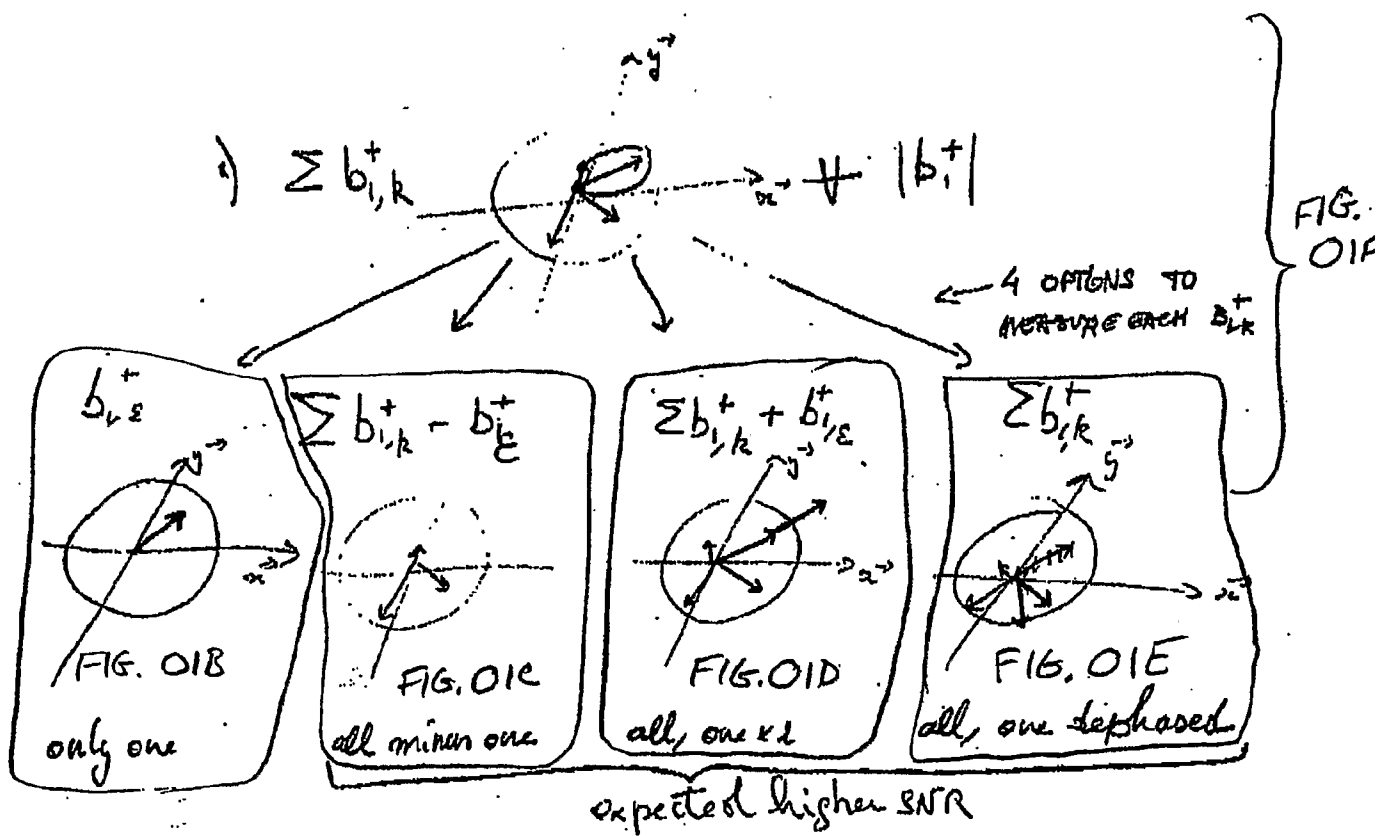 y→
1) Σ b⁺₁,k x→ |b₁⁺|
FIG.
01A
← 4 OPTIONS TO
MEASURE EACH B⁺₁,k
b⁺₁,ε
y→
x→
FIG. 01B
only one
Σ b⁺₁,k - b⁺ε
FIG. 01C
all minus one
Σ b⁺₁,k + b⁺₁,ε
y→
x→
FIG. 01D
all, one x2
Σ b⁺₁,k
y→
x→
FIG. 01E
all, one dephased
expected higher SNR